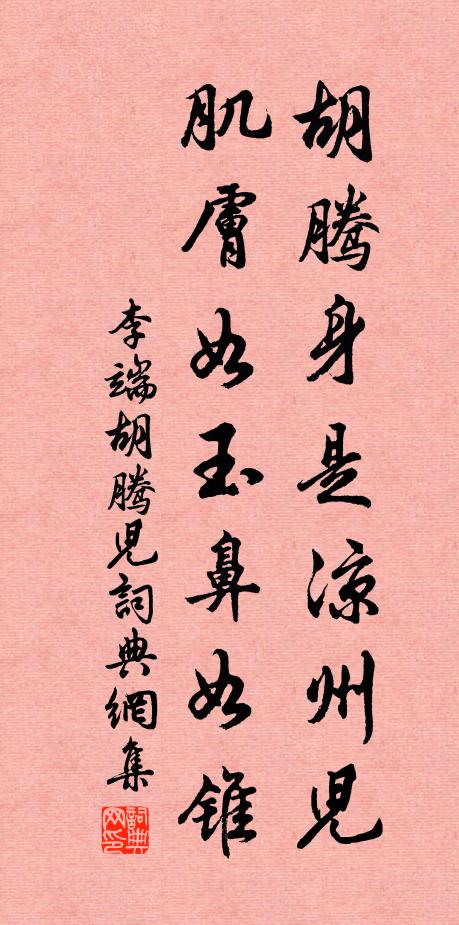 胡騰身是涼州兒
肌膚如玉鼻如錐
李端胡騰兒詞典網集
詞典网印